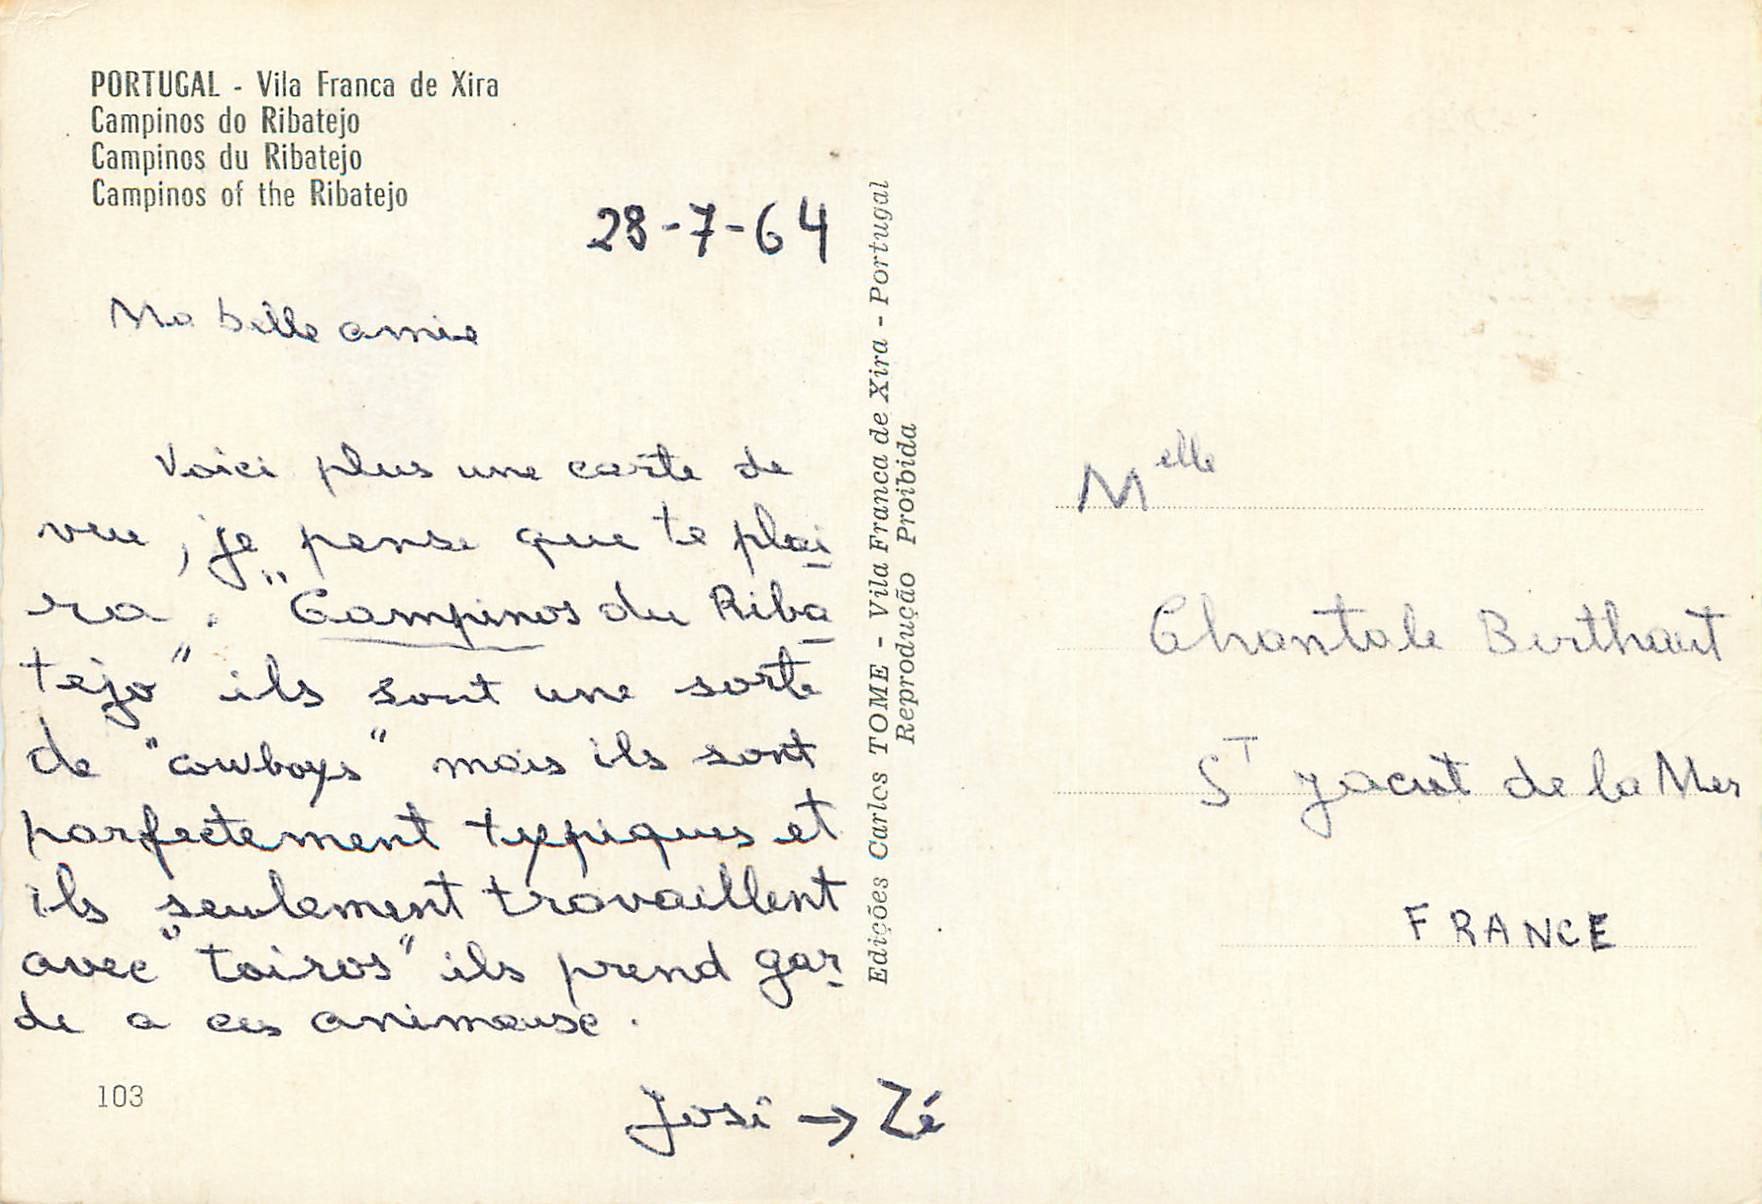 PORTUGAL - Vila Franca de Xira
Campinos do Ribatejo
Campinos du Ribatejo
Campinos of the Ribatejo
28-7-64
Ma belle amie
Voici plus une carte de
veu, je pense que te plai
ra. "Campinos du Riba
tejo" ils sont une sorte
de "cowboys" mais ils sont
parfectement typiques et
ils seulement travaillent
avec "toiros" ils prend gar
de a ces animause.
José → Zé
103
Edições Carlos TOME - Vila Franca de Xira - Portugal
Reprodução Proibida
Melle
Chantale
St Jacut de la Mer
FRANCE